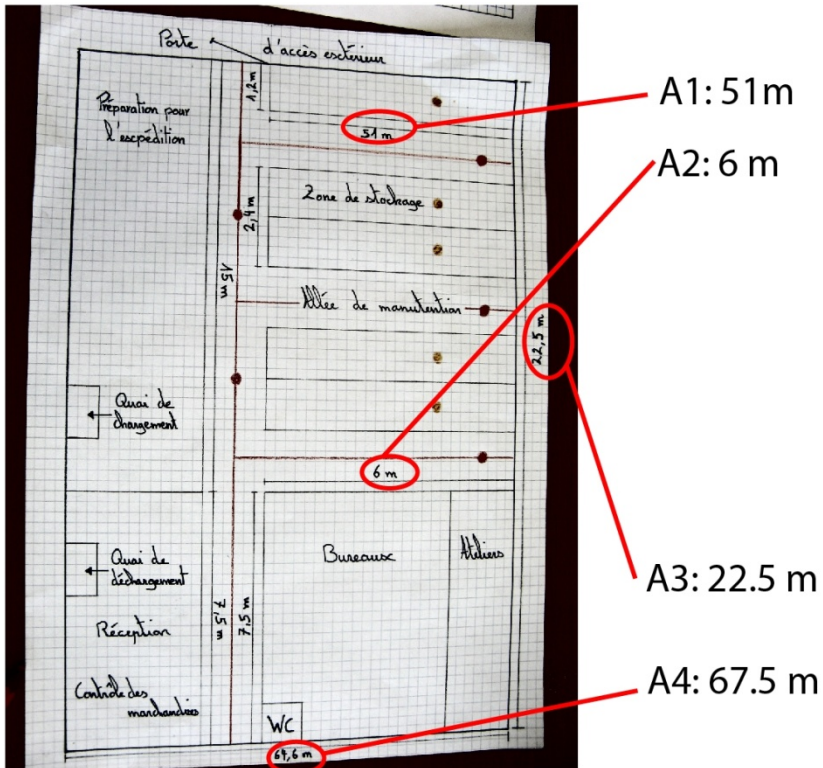 Porte d'accès extérieur
Préparation pour
l'expédition
1,2m
51 m
A1: 51m
A2: 6 m
Zone de stockage
2,4m
15 m
Allée de manutention
22,5 m
Quai de
chargement
6 m
Quai de
déchargement
Bureaux
Ateliers
A3: 22.5 m
7,5 m
7,5 m
Réception
Contrôle des
marchandises
WC
64,6 m
A4: 67.5 m